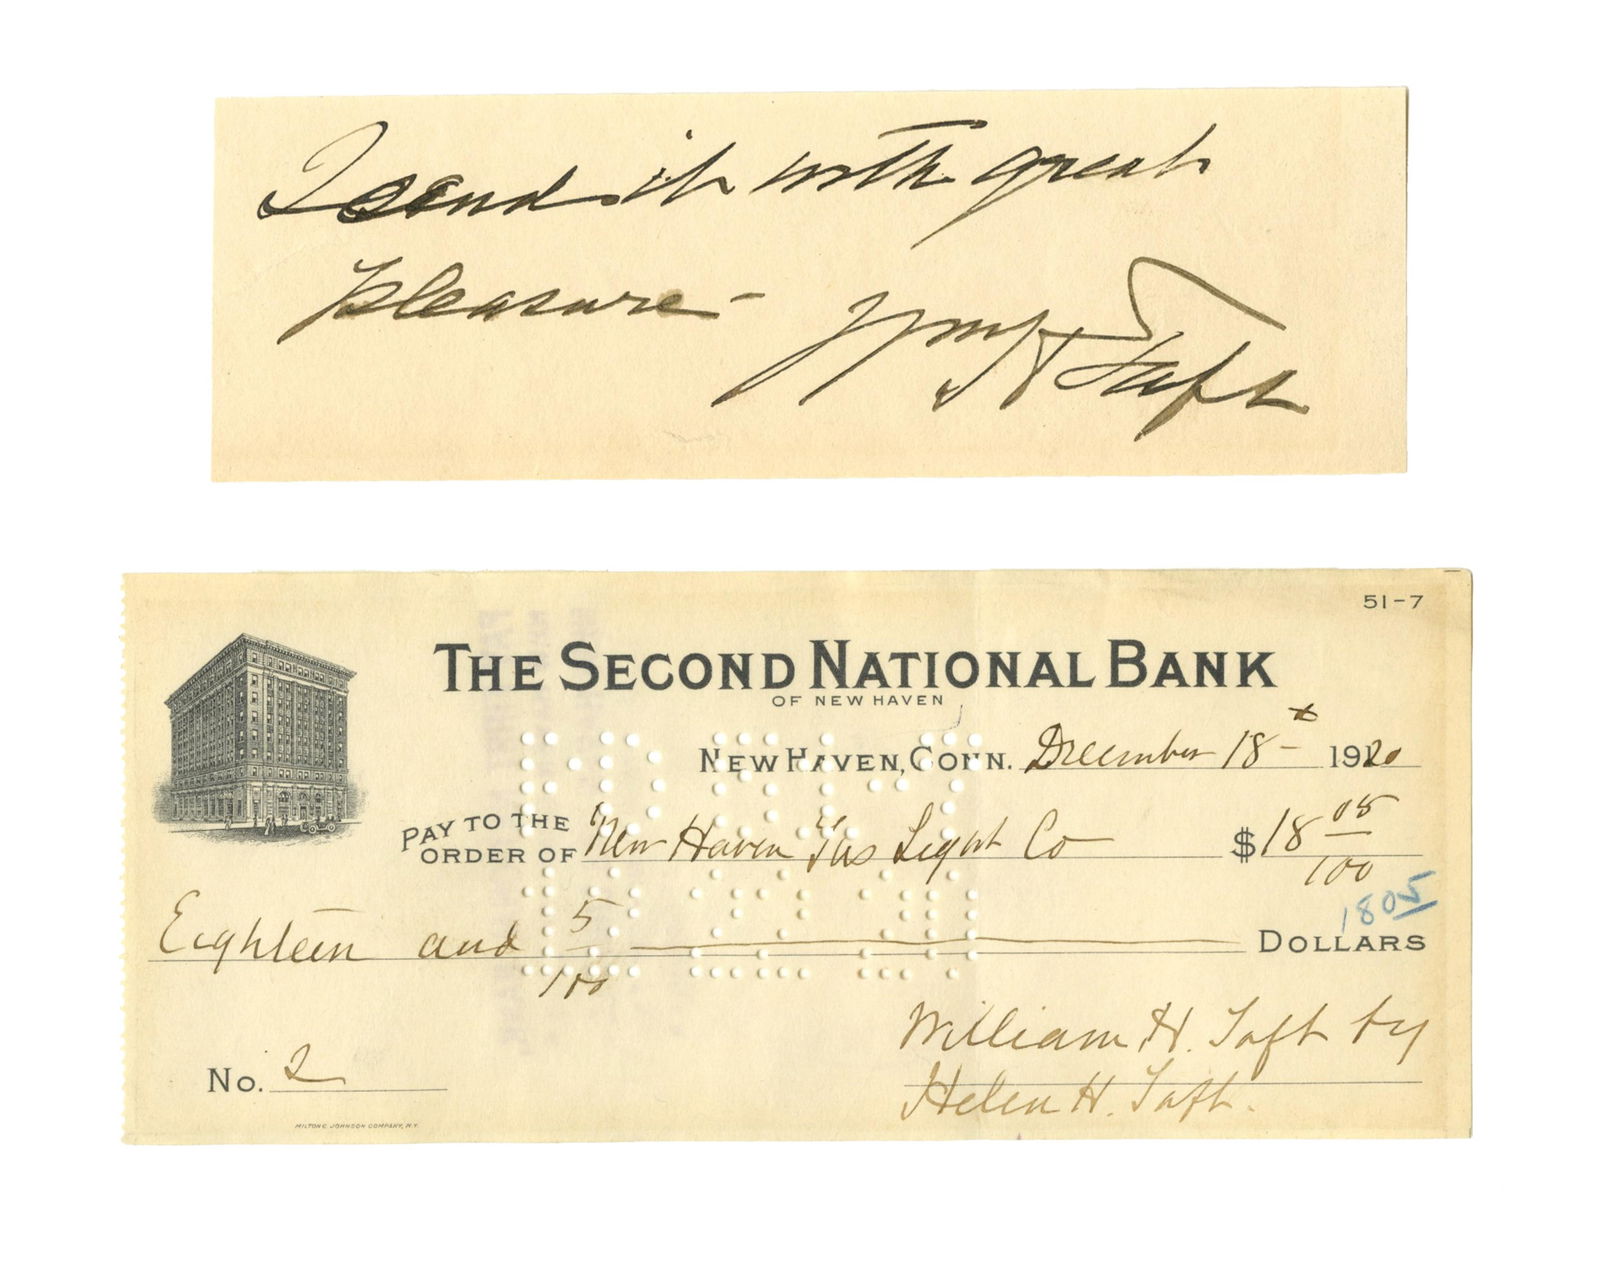 I send it with great
pleasure – Wm H Taft
51-7
THE SECOND NATIONAL BANK
OF NEW HAVEN
NEW HAVEN, CONN. December 18th 1920
PAY TO THE ORDER OF New Haven Gas Light Co $18 05/100
1805
Eighteen and 5/100 DOLLARS
William H. Taft by
Helen H. Taft.
No. 2
MILTON C. JOHNSON COMPANY, N.Y.